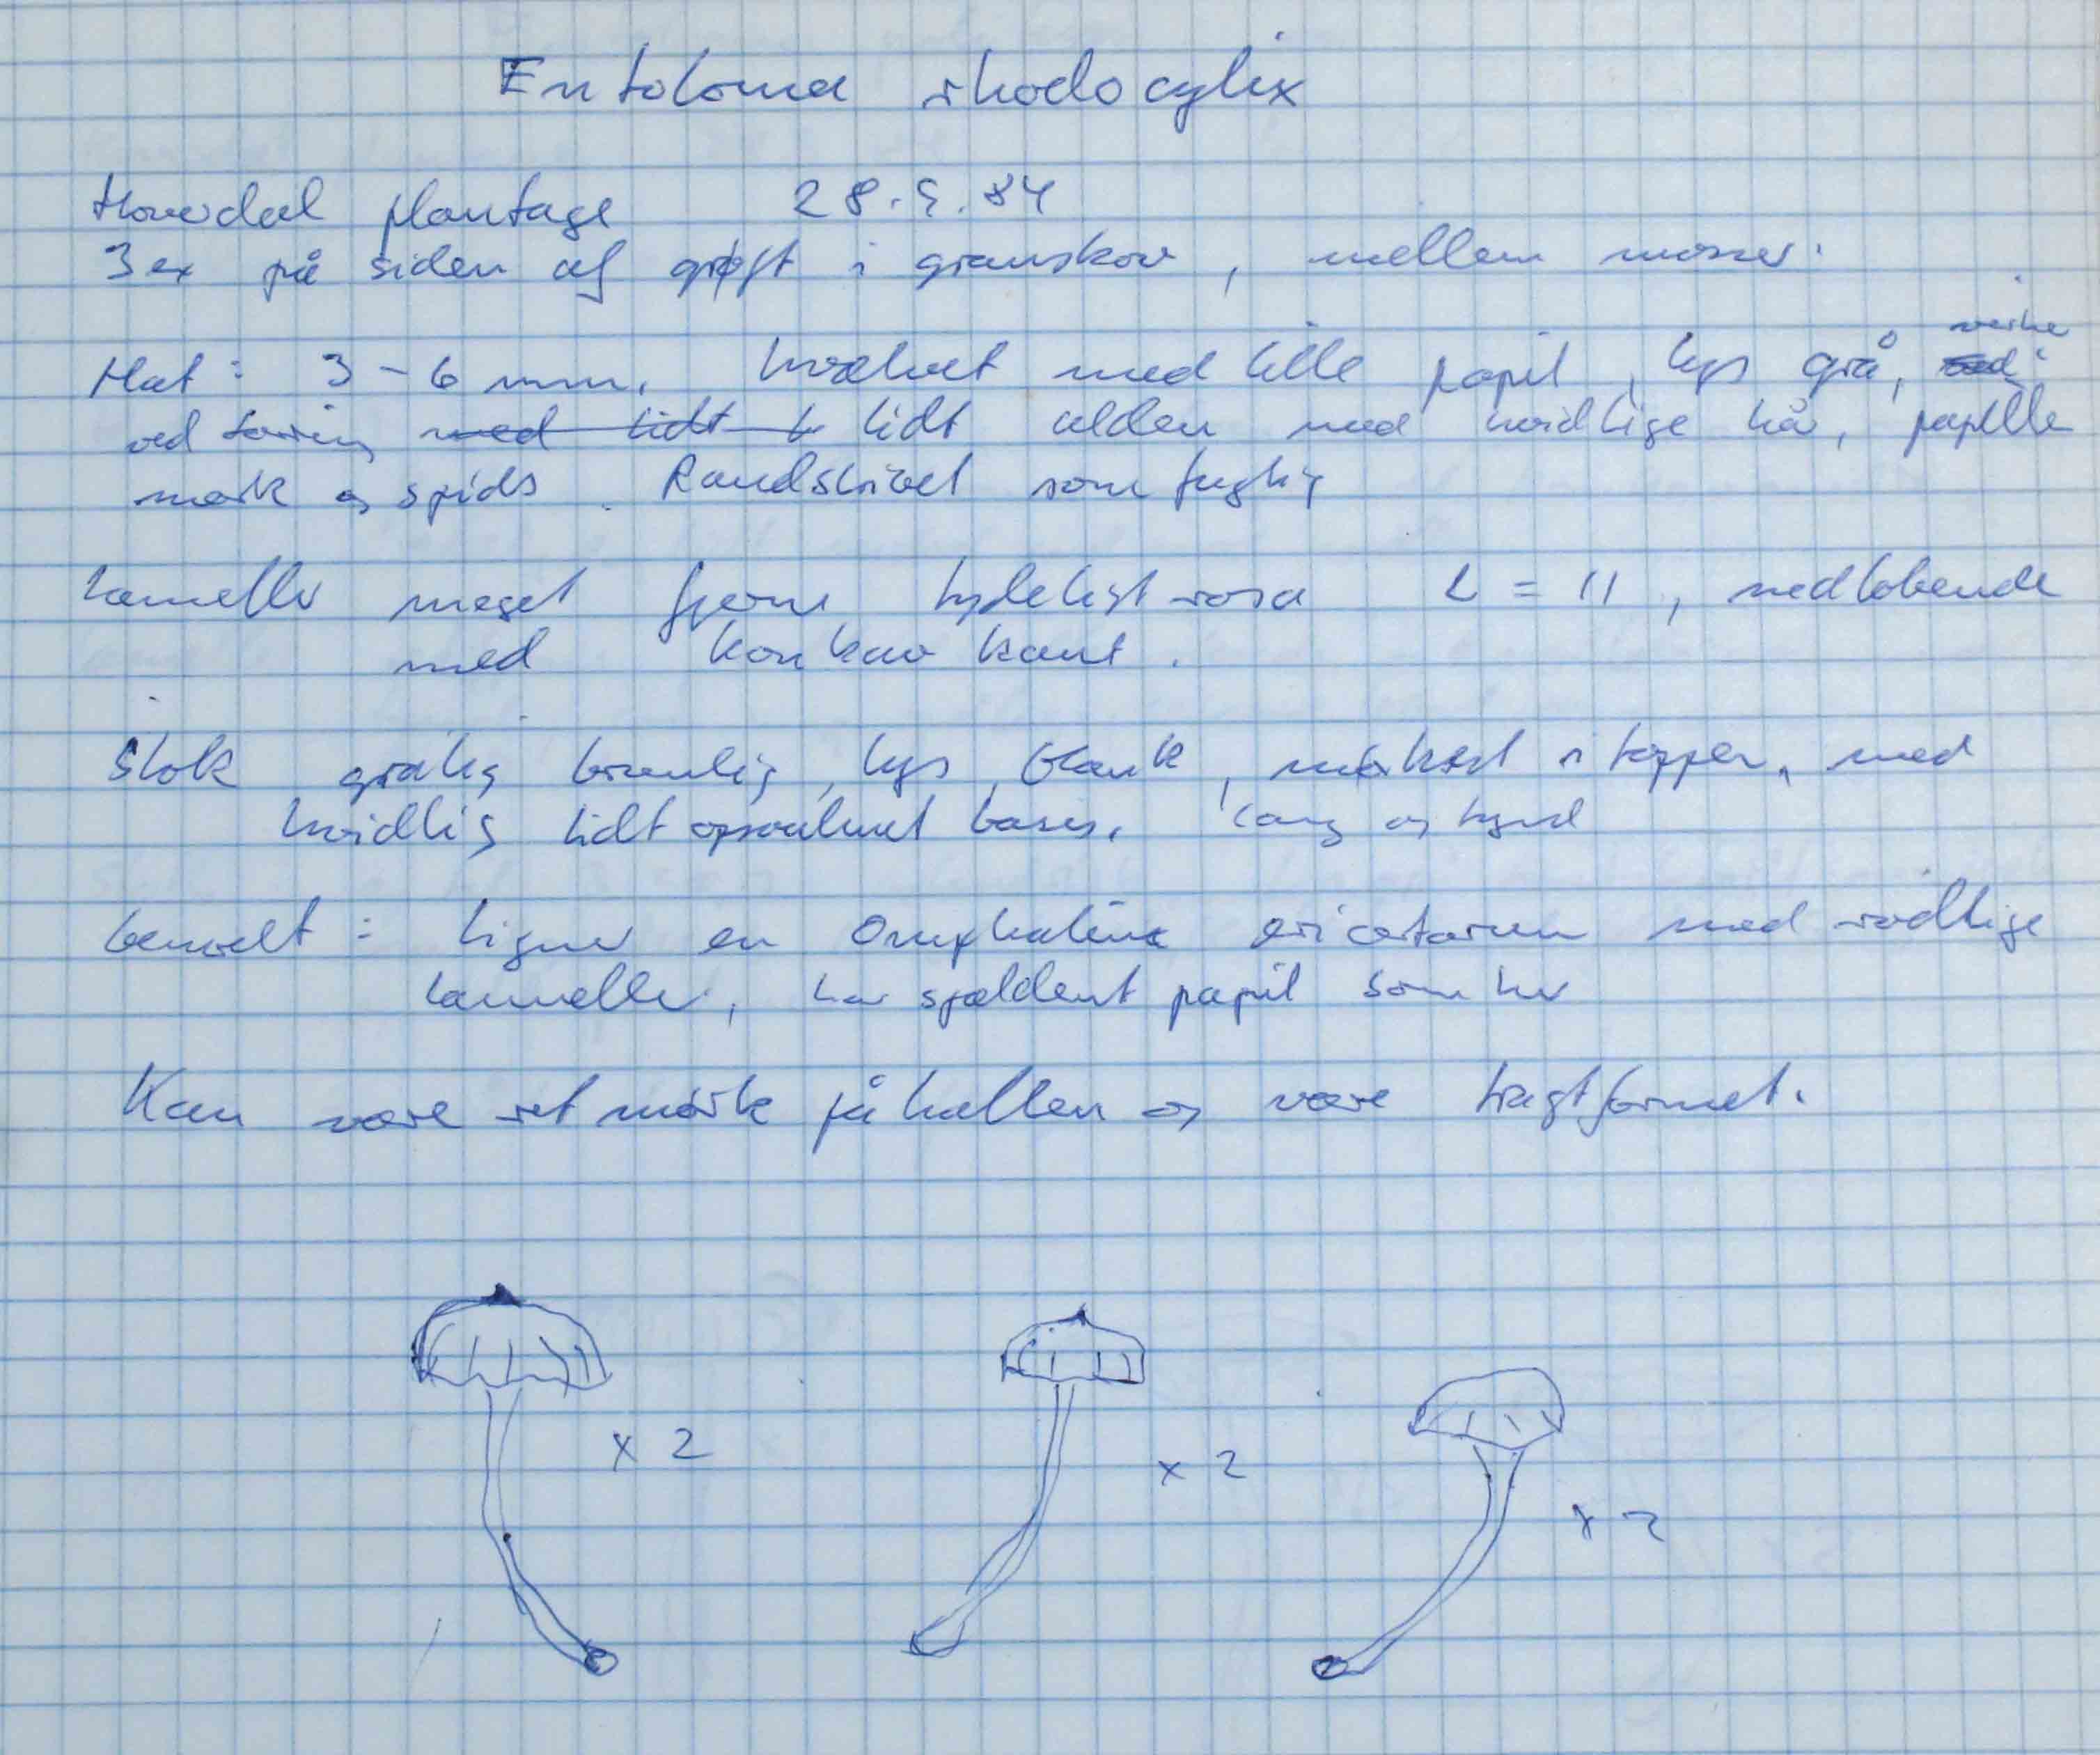 Entoloma rhodocylix
Hoverdal plantage 28.9.84
3 ex på siden af grøft i granskov, mellem mosser.
Hat: 3-6 mm. hvælvet med lille papil, lys grå,
ved tørring med lidt lidt ulden med hvidlige hår, papille
mørk og spids. Randstribet som fugtig
Lameller meget fjerne tydeligt rosa L = 11, nedløbende
med konkav kant.
Stok grålig brunlig, lys, blank, mørkest i toppen, med
hvidlig lidt opsvulmet basis. lang og tynd
Generelt: Ligner en Omphalina ericetorum med rødlige
lameller, har sjældent papil som her
Kan være ret mørk på hatten og være tragtformet.
x 2
x 2
x 2